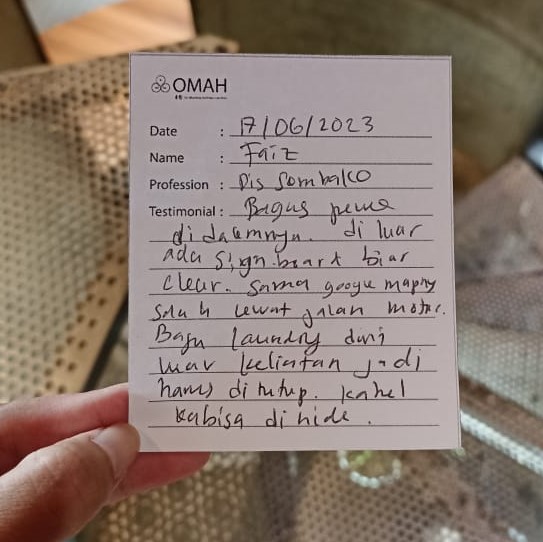 OMAH
Date : 17/06/2023
Name : Faiz
Profession :
Testimonial : Bagus
di dalamnya. di luar
ada sign board biar
clear. Sama google mapny
salah lewat jalan motor.
Baju laundry dari
luar kelihatan jadi
harus di tutup. kabel
kabisa di hide.